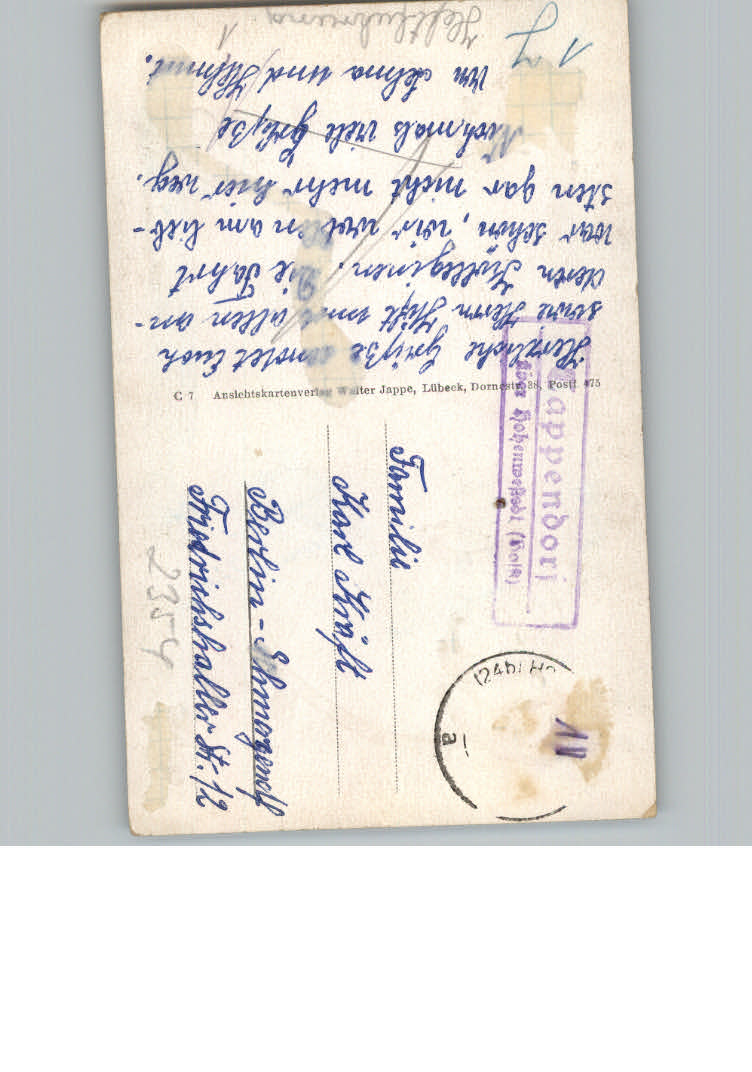 Herzliche Grüße sendet Euch
sowie Herrn Kräft und allen an-
deren Kolleginen. Die Fahrt
war schön, wir wollen am lieb-
sten gar nicht mehr hier weg.
Nochmals viele Grüße
von Erna und Helmut.
C 7 Ansichtskartenverlag Walter Jappe, Lübeck, Dornestr. 38, Postf. 475
Familie
Karl Kräft
Berlin-Schmargendorf
Friedrichshaller St. 12
Tappendorf
über Hohenwestedt (Holst)
(24b) Ho
a
10
2354
1
1